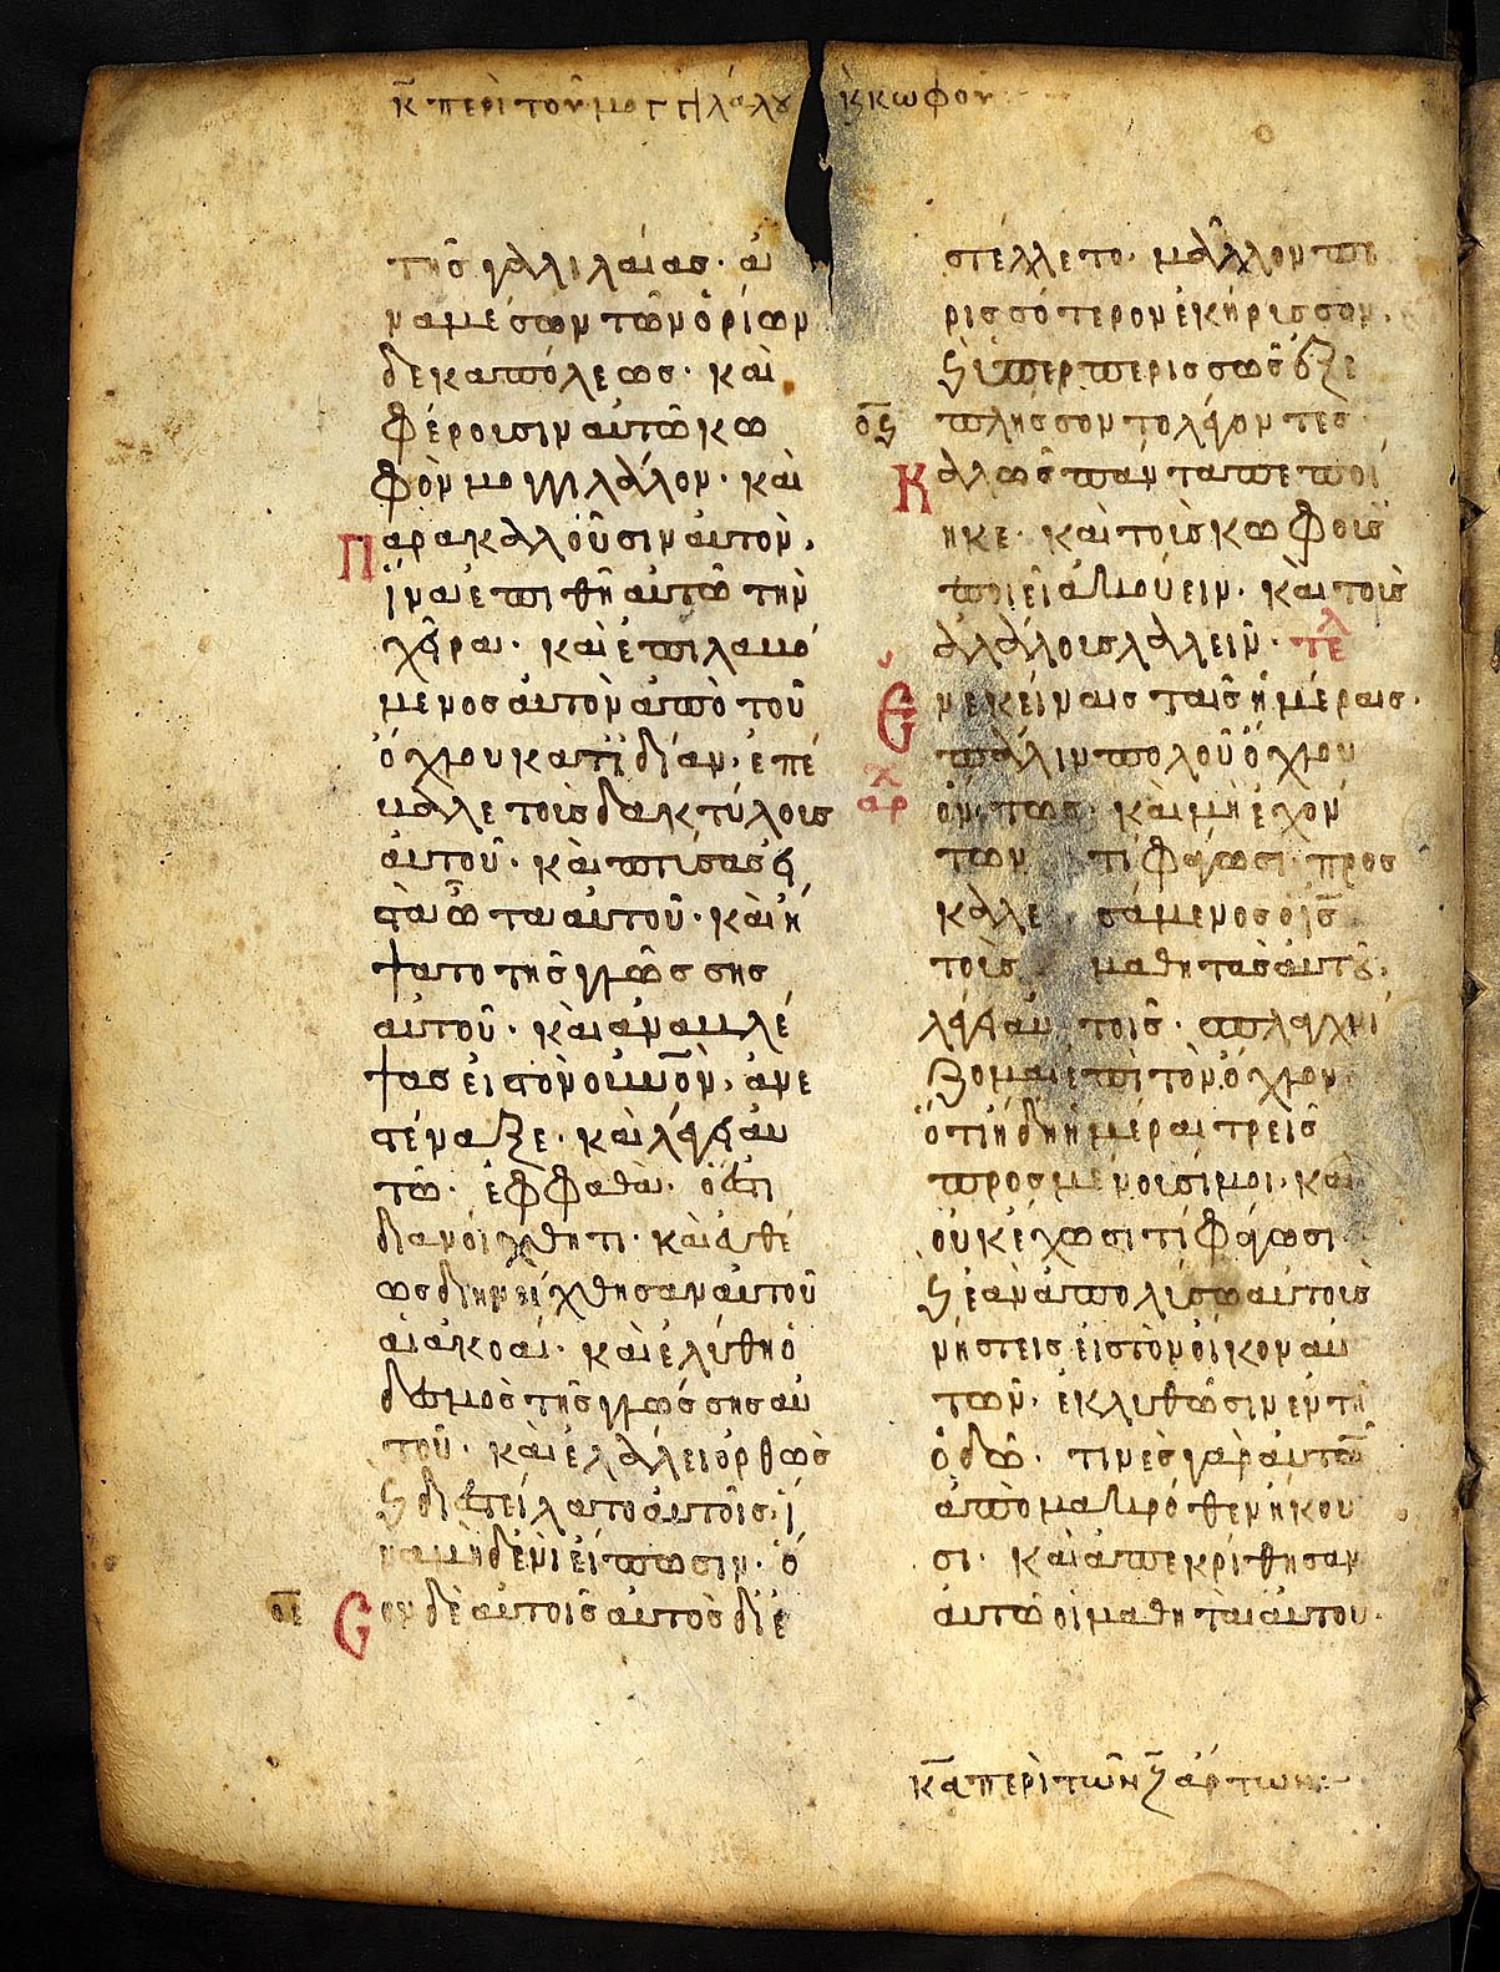 κ̅ περὶ τοῦ μογγιλάλου κ κωφοῦ
τῆς γαλιλαίας· ἀ
ναμέσων τῶν ὁρίων
δεκαπόλεως· καὶ
φέρουσιν αὐτῶ κω
φὸν μογγιλάλον· καὶ
Παρακαλοῦσιν αὐτὸν,
ἵνα ἐπιθῆ αὐτῶ τὴν
χεῖρα· καὶ ἐπιλαβό
μενος αὐτὸν ἀπὸ τοῦ
ὄχλου κατϊδίαν, ἐπέ
βαλε τοὺς δακτύλους
αὐτοῦ· καὶ πτύσας εἰ
τὰ ὦτα αὐτοῦ· καὶ ἥ
ψατο τῆς γλώσσης
αὐτοῦ· καὶ ἀναβλέ
ψας εἰς τὸν οὐ̅νο̅ν, ἀνε
στέναξε· καὶ λέγει αὐ
τῶ· ἐφφαθὰ· ὅ ἐστι
διανοίχθητι· καὶ εὐθέ
ως διηνοίχθησαν αὐτοῦ
αἱ ἀκοαί· καὶ ἐλύθη ὁ
δεσμὸς τῆς γλώσσης αὐ
τοῦ· καὶ ἐλάλει ὀρθῶς
ϗ διεστείλατο αὐτοῖς, ἵ
να μηδενὶ εἴπωσιν· ὅ
ο̅ε̅ Σον δὲ αὐτοῖς αὐτὸς διε
στέλλετο· μᾶλλον πε
ρισσότερον ἐκήρισσον,
ϗ ὑπερπερισσῶς ἐξε
ο̅ϛ̅ πλήσσοντο λέγοντες·
Καλῶς πάντα πεποί
ηκε· καὶ τοὺς κωφοὺς
ποιεῖ ἀκούειν· καὶ τοὺς
ἀλάλους λαλεῖν· τελ
Ἐν ἐκείναις ταῖς ἡμέραις·
πάλιν πολοῦ ὄχλου
αρχ ὄντως· καὶ μὴ ἐχόν
των τί φάγωσι· προσ
καλεσάμενος ὁ ι̅ς̅
τοὺς μαθητὰς αὐτοῦ,
λέγει αὐτοῖς· σπλαγχνί
ζομαι ἐπὶ τὸν ὄχλον,
ὅτι ἤδη ἡμέραι τρεῖς
προσμένουσί μοι, καὶ
οὐκ ἔχωσι τί φάγωσι
ϗ ἐὰν ἀπολύσω αὐτοὺς
νήστεις εἰς τὸν οἶκον αὐ
τῶν, ἐκλυθῶσιν ἐν τῆ
ὁδῶ· τινὲς γὰρ αὐτῶ
ἀπὸ μακρόθεν ἥκου
σι· καὶ ἀπεκρίθησαν
αὐτῶ οἱ μαθηταὶ αὐτοῦ·
κ̅α̅ περὶ τῶν ζ̅ ἄρτων:-